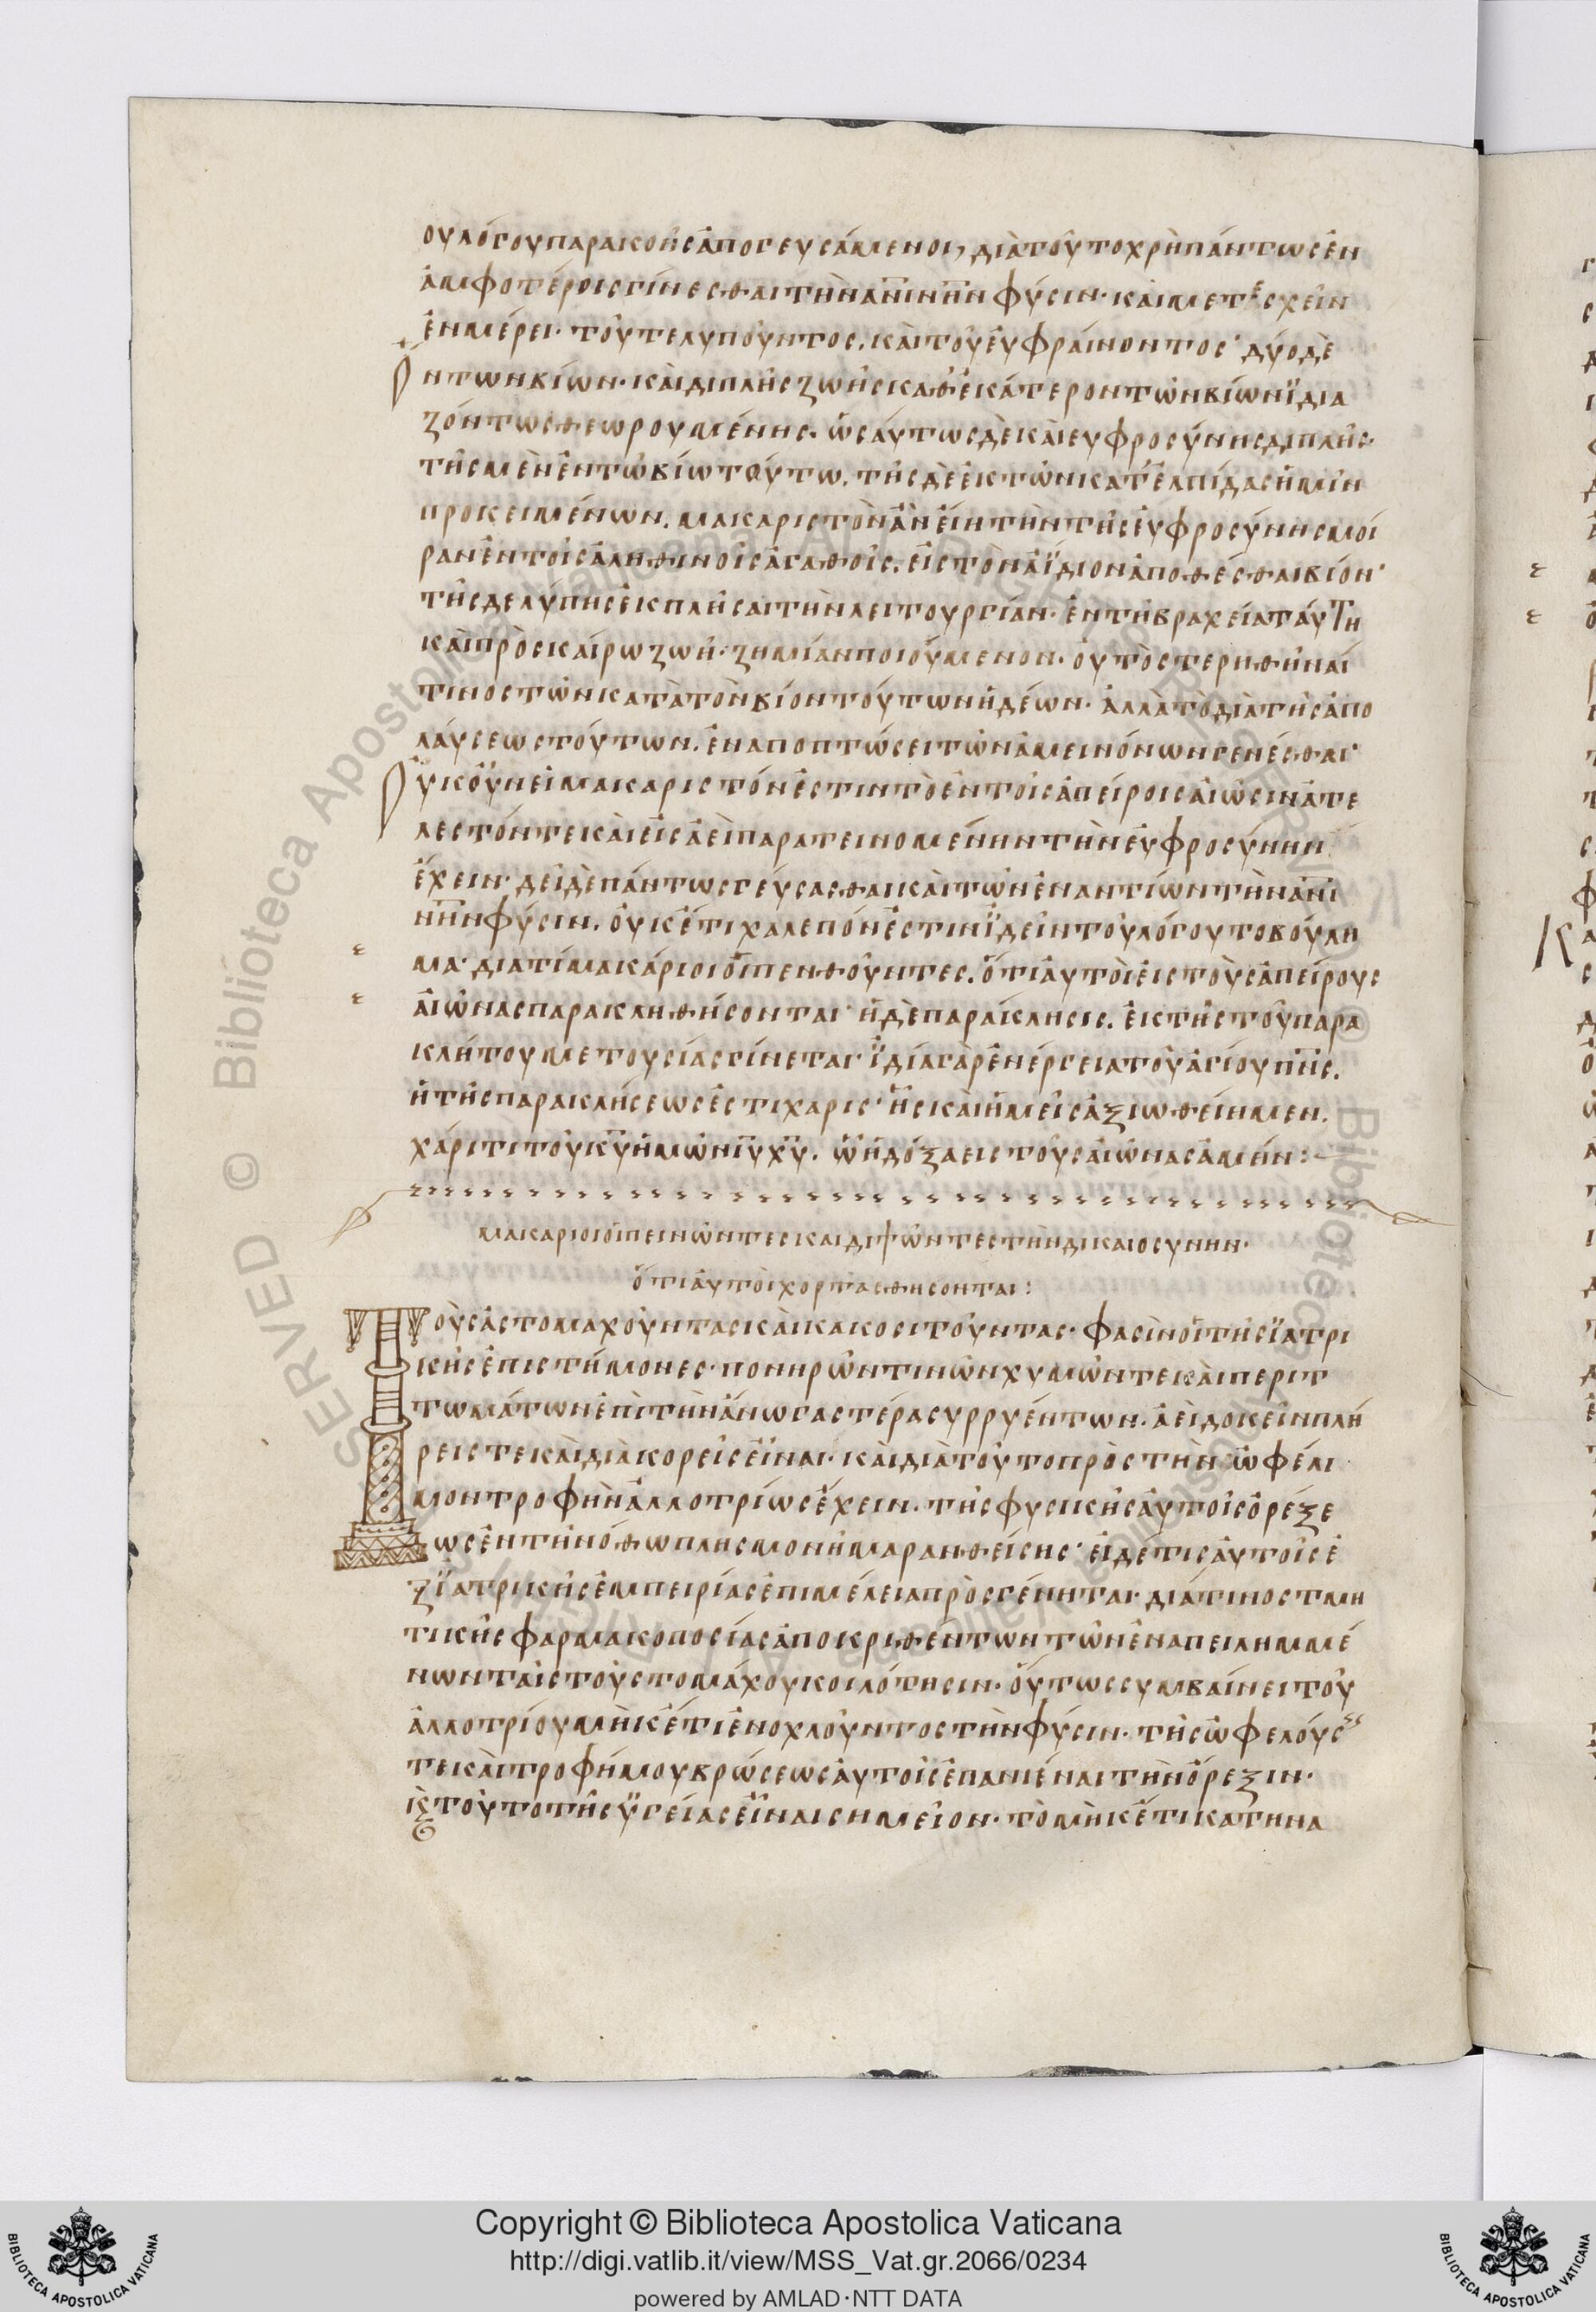 ου λόγου παρακοῆς ἀπογευσάμενοι, διὰ τοῦτο χρὴ πάντως ἐν
ἀμφοτέροις γίνεσθαι τὴν ἀνίνην φύσιν· καὶ μετέσχεῖν
ἐν μέρει· τοῦ τε λυποῦντος, καὶ τοῦ εὐφραίνοντος· δύο δὲ
ὄντων βίων· καὶ διπλῆς ζωῆς καθ' ἑκάτερον τῶν βίων ϊδια
ζόντως θεωρουμένης· ὡσαύτως δὲ καὶ ευφροσύνης διπλῆς·
τῆς μὲν ἐν τῶ βίω τούτω, τῆς δὲ ἐκ τῶν κατ' ἐλπίδας ἡμῖν
προκειμένων, μακαριστὸν ἂν εἴη τὴν τῆς εὐφροσύνης μοί
ραν ἐν τοῖς ἀληθινοῖς ἀγαθοῖς, εἰς τὸν ἀΐδιον ἀποθέσθαι βίον·
τῆς δε λύπης ἐκπλῆσαι τὴν λειτουργίαν· ἐν τῆ βραχεία ταύτη
καὶ προσκαίρω ζωῆ· ζημίαν ποιούμενον· οὐ τὸ στερηθῆναί
τινος τῶν κατὰ τὸν βίον τούτων ἡδέων· ἀλλὰ τὸ διὰ τῆς ἀπο
λαύσεως τούτων, ἐν αποπτώσει τῶν ἀμεινόνων γενέσθαι·
Οὐκοῦν εἰ μακαριστόν ἐστιν τὸ ἐν τοῖς ἀπείροις αἰῶσιν ἀτε
λεστόν τε καὶ εἰς ἀεὶ παρατεινομένην τὴν εὐφροσύνην
ἔχειν· δεῖ δὲ πάντως γεύσασθαι καὶ τῶν ἐναντίων τὴν ἀνί
νην φύσιν, οὐκέτι χαλεπόν ἐστιν ϊδεῖν τοῦ λόγου το βούλη
μα· διατί μακάριοι οἱ πενθοῦντες, ὅτι αὐτοὶ εἰς τοὺς ἀπείρους
αἰῶνας παρακληθήσονται· ἡ δὲ παράκλησις, ἐκ τῆς τοῦ παρα
κλήτου μετουσίας γίνεται· ϊδία γὰρ ἐνέργεια τοῦ ἁγίου πνς,
ἡ τῆς παρακλήσεως ἐστι χαρις· ἧς καὶ ἡμεῖς ἀξιωθείημεν,
χάριτι τοῦ κυ ἡμῶν ιυ χυ, ὧ ἡ δόξα εις τοὺς αἰῶνας ἀμήν:
μακαριοι οἱ πεινῶντες και διψῶντες τὴν δικαιοσυνην·
ὅτι αὐτοὶ χορτασθησονται:
Τοὺς ἀστομαχοῦντας καὶ κακοσιτοῦντας· φασὶν οἱ τῆς ϊατρι
κῆς ἐπιστήμονες· πονηρῶν τινῶν χυμῶν τε καὶ περιτ
τωμάτων ἐπὶ τὴν ἄνω γαστέρα συρρυέντων· ἀεὶ δοκεῖν πλή
ρεις τε καὶ διὰκορεῖς εἶναι· καὶ διὰ τοῦτο πρὸς τὴν ὠφέλι
μον τροφὴν ἀλλοτρίως ἔχειν· τῆς φυσικῆς αὐτοῖς ὀρέξε
ως ἐν τῆ νόθω πλησμονῆ μαρανθείσης· εἰ δε τις αὐτοῖς ἐ
ξ ϊατρικῆς ἐμπειρίας ἐπιμέλεια πρὸσγένηται· διά τινος τμη
τικῆς φαρμακοποσίας ἀποκριθέντων τῶν ἐναπειλημμέ
νων ταῖς τοῦ στομάχου κοιλότησιν· οὕτως συμβαίνει τοῦ
ἀλλοτρίου μὴκέτι ἐνοχλοῦντος τὴν φύσιν· τῆς ὠφελούσης
τε καὶ τροφήμου βρώσεως αὐτοῖς ἐπανιέναι τὴν ὄρεξιν·
κ τοῦτο τῆς ϋγείας εἶναι σημεῖον· τὸ μὴκέτι κατηνα
Copyright © Biblioteca Apostolica Vaticana
http://digi.vatlib.it/view/MSS_Vat.gr.2066/0234
powered by AMLAD·NTT DATA